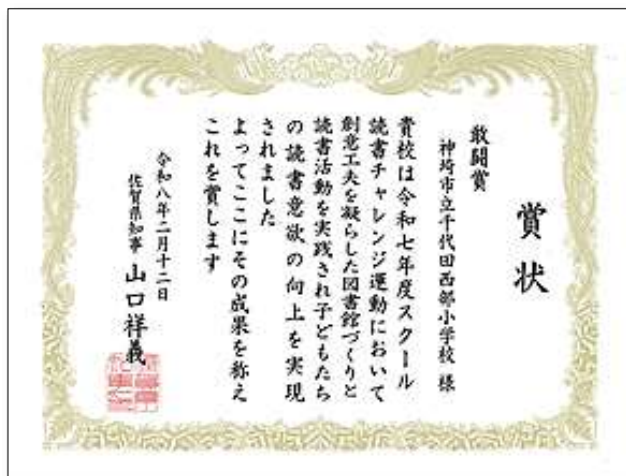 賞状
敢闘賞
神埼市立千代田西部小学校 様
貴校は令和七年度スクール
読書チャレンジ運動において
創意工夫を凝らした図書館づくりと
読書活動を実践され子どもたち
の読書意欲の向上を実現
されました
よってここにその成果を称え
これを賞します
令和八年二月十二日
佐賀県知事 山口祥義